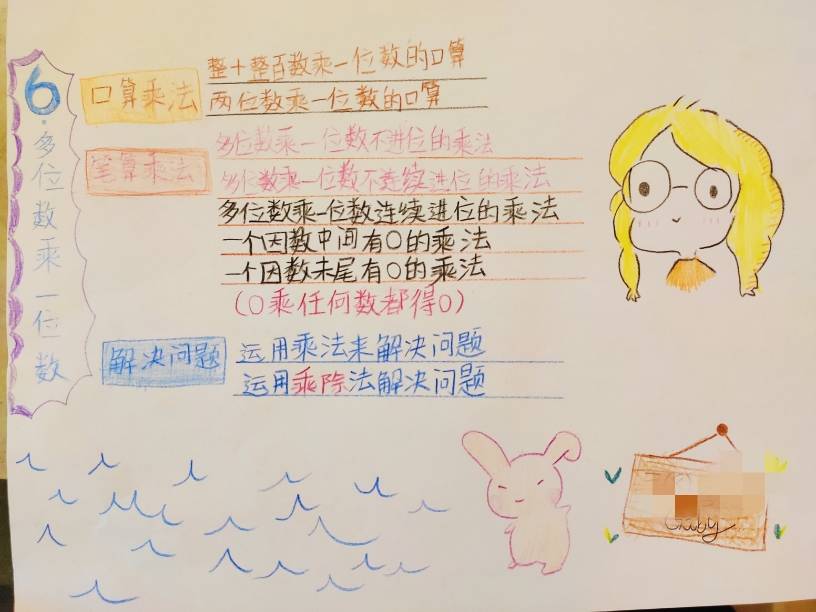 6.多位数乘一位数
口算乘法
整十整百数乘一位数的口算
两位数乘一位数的口算
笔算乘法
多位数乘一位数不进位的乘法
多位数乘一位数不连续进位的乘法
多位数乘一位数连续进位的乘法
一个因数中间有0的乘法
一个因数末尾有0的乘法
(0乘任何数都得0)
解决问题
运用乘法来解决问题
运用乘除法解决问题